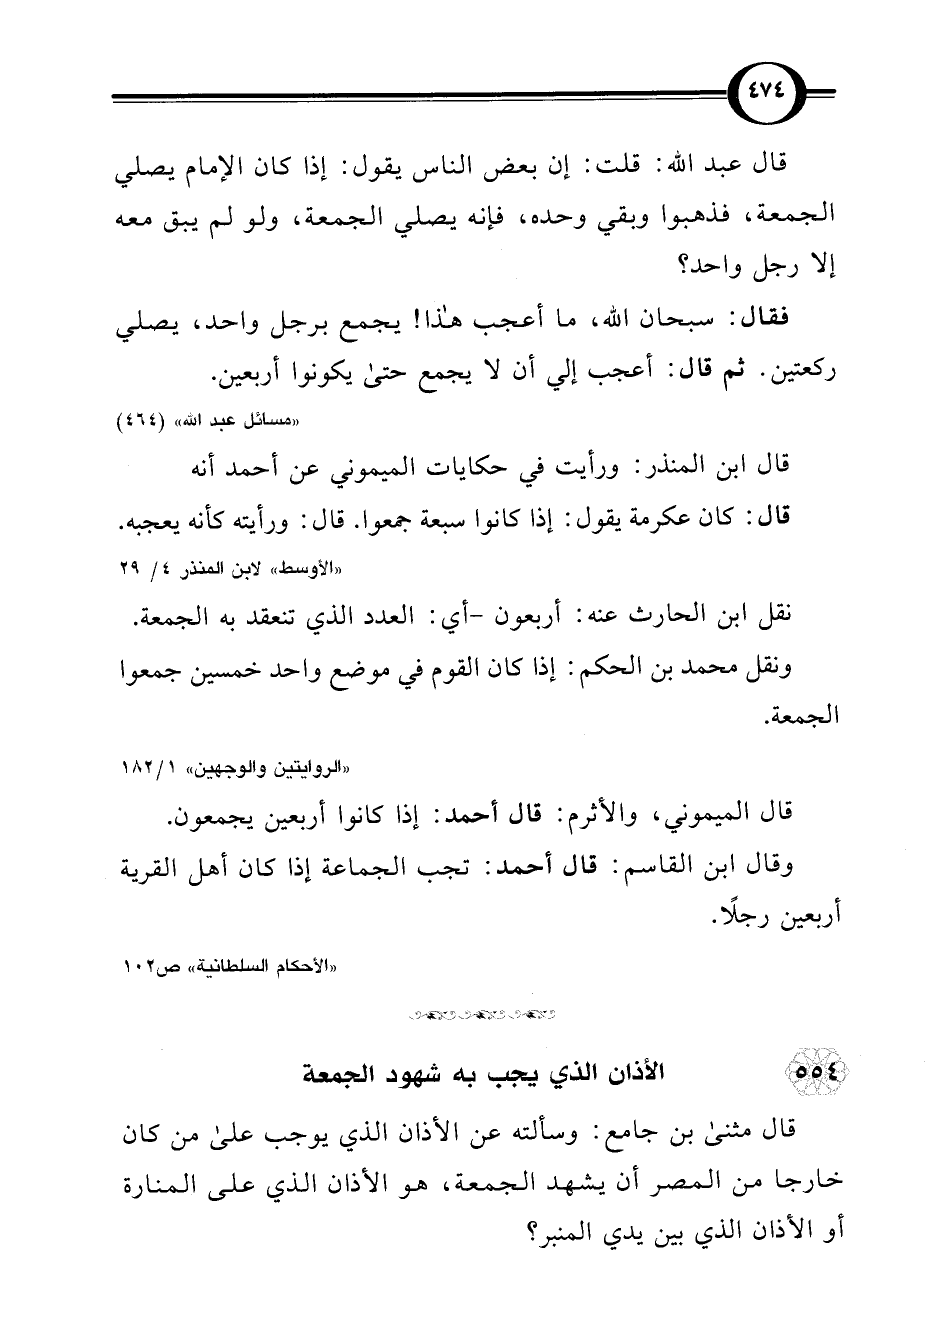 ٤٧٤
قال عبد الله: قلت: إن بعض الناس يقول: إذا كان الإمام يصلي
الجمعة، فذهبوا وبقي وحده، فإنه يصلي الجمعة، ولو لم يبق معه
إلا رجل واحد؟
فقال: سبحان الله، ما أعجب هذا! يجمع برجل واحد، يصلي
ركعتين. ثم قال: أعجب إلي أن لا يجمع حتىٰ يكونوا أربعين.
«مسائل عبد الله» (٤٦٤)
قال ابن المنذر: ورأيت في حكايات الميموني عن أحمد أنه
قال: كان عكرمة يقول: إذا كانوا سبعة جمعوا. قال: ورأيته كأنه يعجبه.
«الأوسط» لابن المنذر ٤/ ٢٩
نقل ابن الحارث عنه: أربعون -أي: العدد الذي تنعقد به الجمعة.
ونقل محمد بن الحكم: إذا كان القوم في موضع واحد خمسين جمعوا
الجمعة.
«الروايتين والوجهين» ١/ ١٨٢
قال الميموني، والأثرم: قال أحمد: إذا كانوا أربعين يجمعون.
وقال ابن القاسم: قال أحمد: تجب الجماعة إذا كان أهل القرية
أربعين رجلًا.
«الأحكام السلطانية» ص١٠٢
٥٥٤ الأذان الذي يجب به شهود الجمعة
قال مثنىٰ بن جامع: وسألته عن الأذان الذي يوجب علىٰ من كان
خارجا من المصر أن يشهد الجمعة، هو الأذان الذي على المنارة
أو الأذان الذي بين يدي المنبر؟